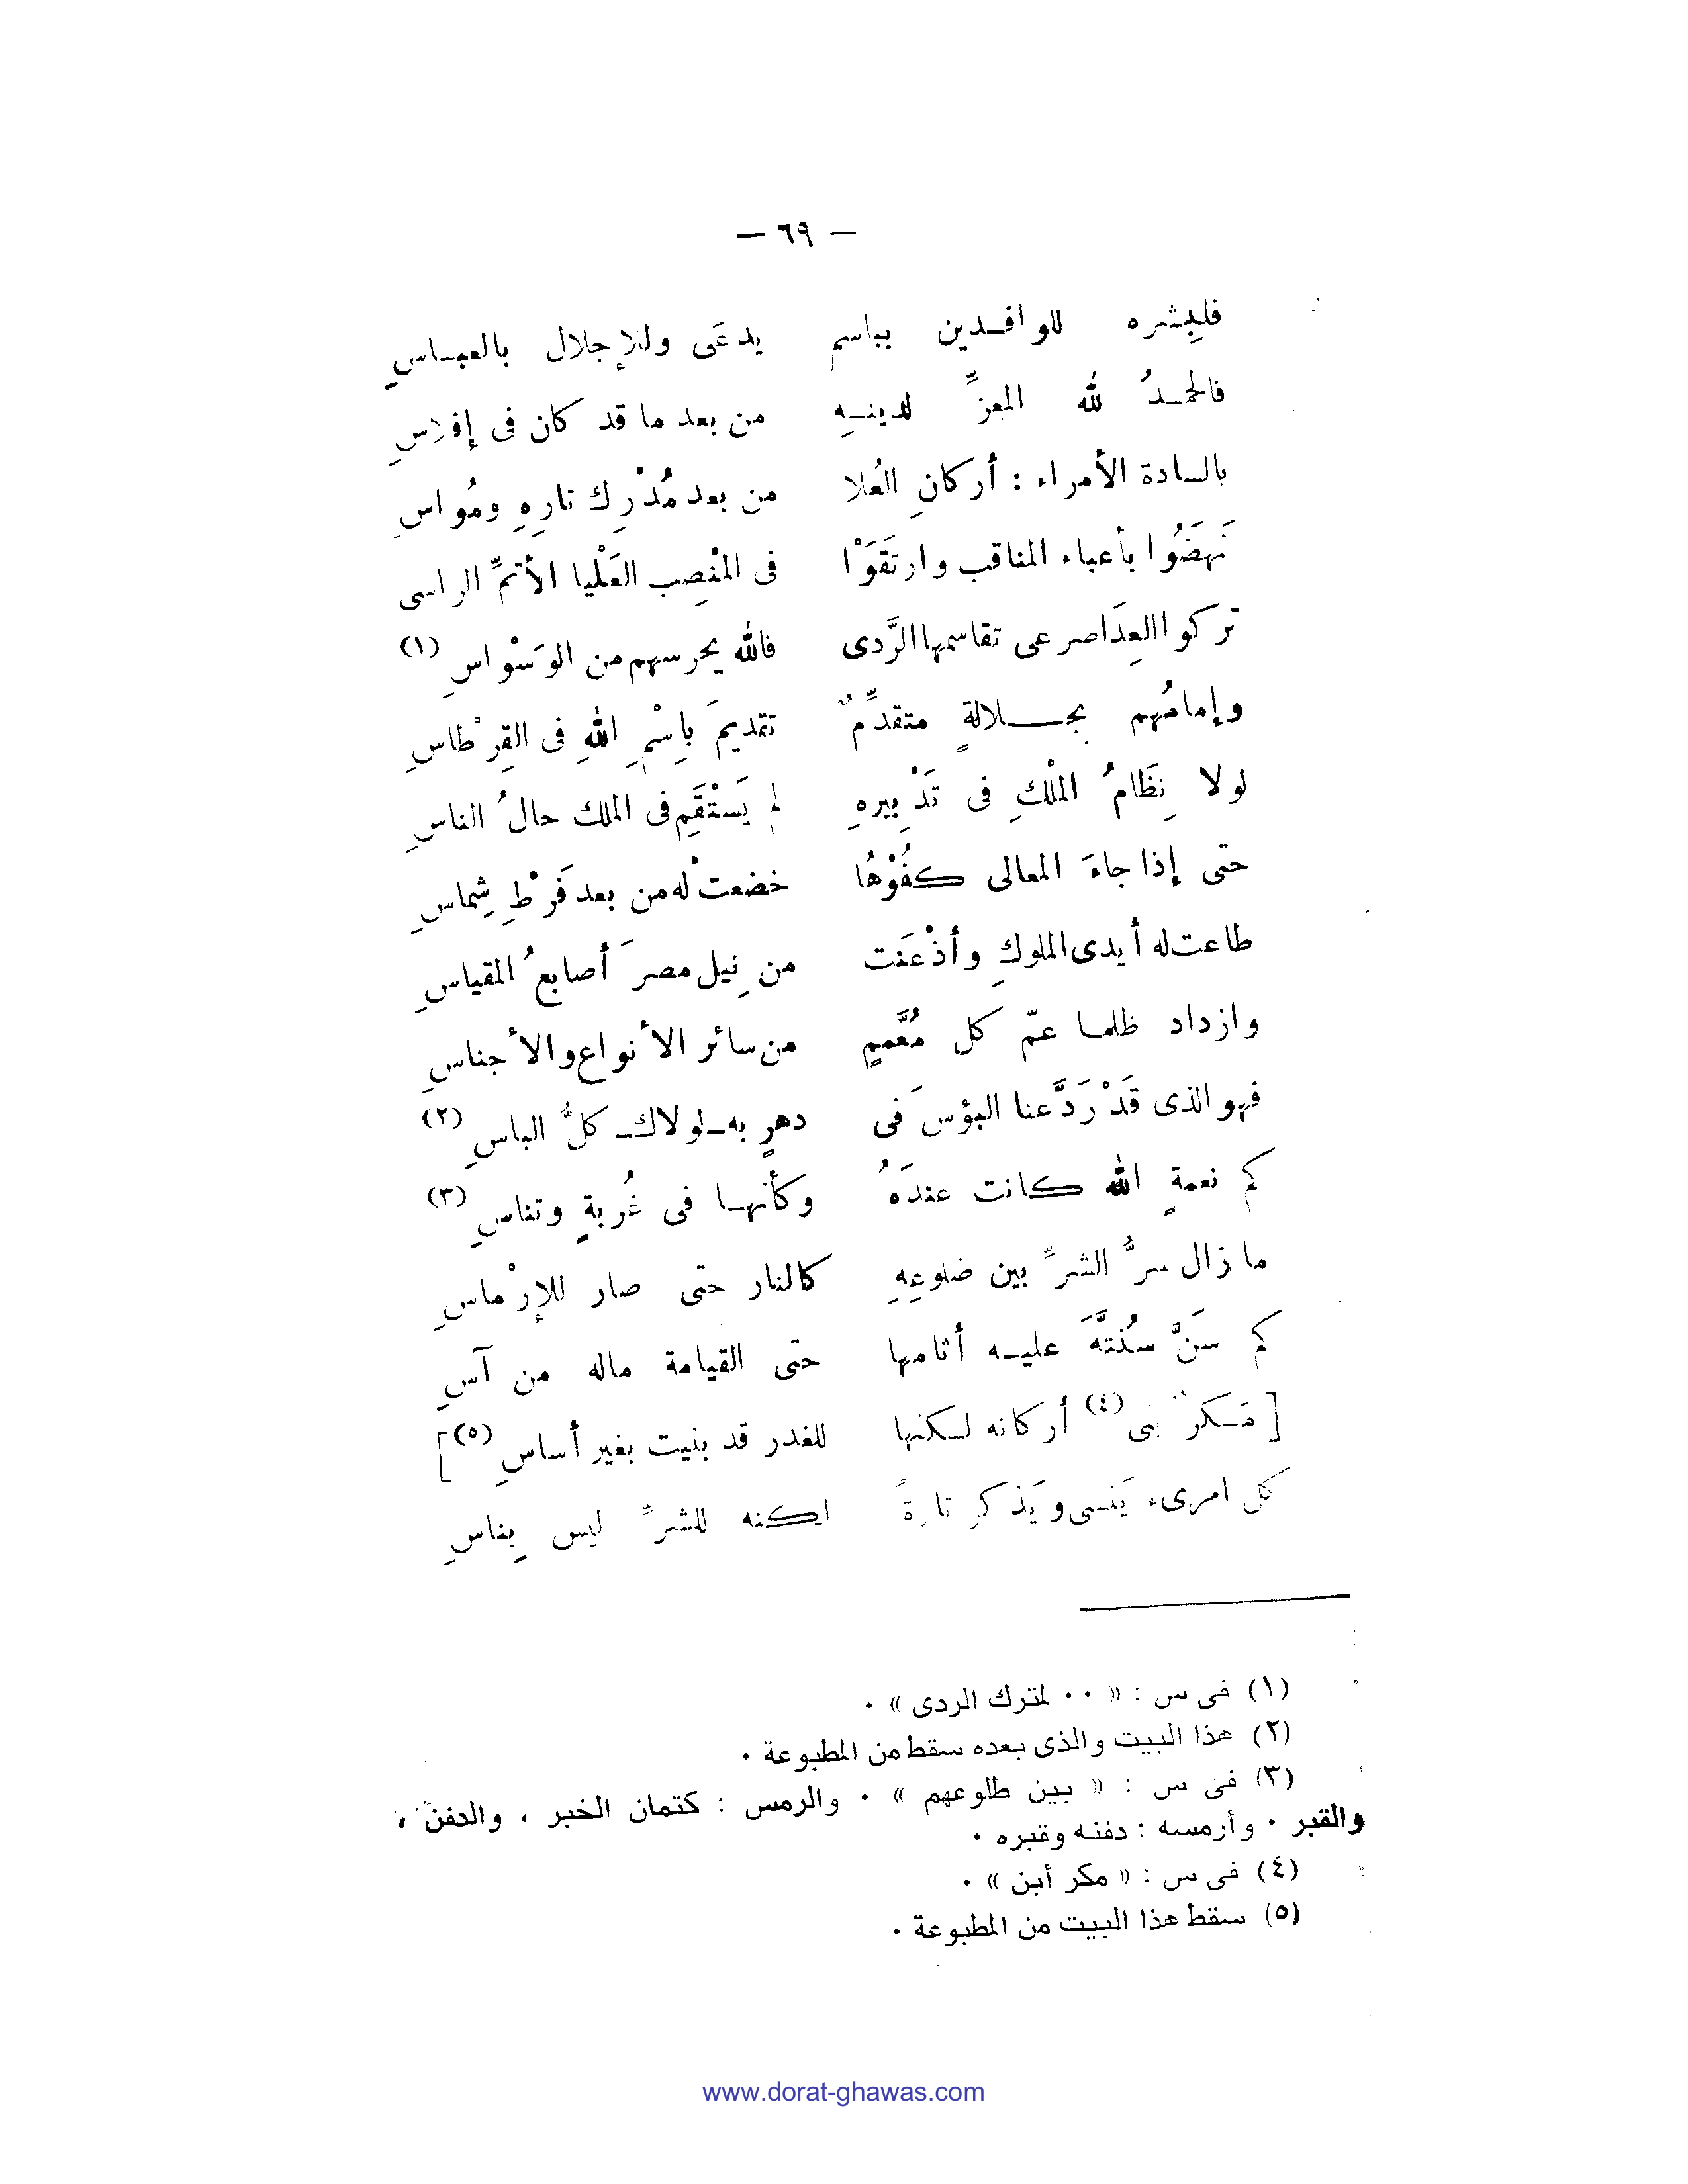 — ٦٩ —
فلبِشره للوافـدين بباسم يدعَى وللإجلال بالعبـاسِ
فالحمـدُ لله المعزِّ لدينـهِ من بعد ما قد كان فى إفلاسِ
بالسادة الأمراء : أركانِ العُلا من بعد مُدْرِك ثارِهِ ومُواسِ
نَهَضُوا بأعباء المناقب وارتَقَوْا فى المنْصِب العَلْيا الأتمِّ الراسى
تركوا العِدَا صرعى تقاسمها الرَّدى فالله يحرسهم من الوَسْواسِ (١)
وإمامُهم بجـلالةٍ متقدِّمٌ تقديمَ بِاِسْمِ اللهِ فى القِرْطاسِ
لولا نِظَامُ الملْكِ فى تَدْبِيرهِ لم يَسْتَقِمِ فى الملك حالُ الناسِ
حتى إذا جاءَ المعالى كُفُؤْهَا خضعتْ له من بعد فَرْطِ شِماسِ
طاعت له أيدى الملوكِ وأذْعَنت من نِيل مصرَ أصابعُ المقياسِ
وازداد ظلمـا عمّ كل مُعَّممٍ من سائر الأنواع والأجناسِ
فهو الذى قَدْ رَدَّ عنا البؤسَ فى دهرٍ به ـ لولاك ـ كلُّ الباسِ (٢)
كم نعمةٍ الله كانت عندَهُ وكأنهـا فى غُربةٍ وتناسِ (٣)
ما زال سرُّ الشرِّ بين ضلوعِهِ كالنار حتى صار للإرْماسِ
كم سَنَّ سُنتَّهَ عليـه أثامها حتى القيامة ماله من آسِ
[ مَـكرٌ بنى (٤) أركانه لـكنها للغدر قد بنيت بغير أساسِ (٥) ]
كل امرىء يَنسى ويَذكر تارةً لكنه للشرِّ ليس بِناسِ
(١) فى س : « ٠٠ لمترك الردى » ٠
(٢) هذا البيت والذى بعده سقط من المطبوعة ٠
(٣) فى س : « بين طلوعهم » ٠ والرمس : كتمان الخبر ، والدفن ،
والقبر ٠ وأرمسه : دفنه وقبره ٠
(٤) فى س : « مكر أبن » ٠
(٥) سقط هذا البيت من المطبوعة ٠
www.dorat-ghawas.com